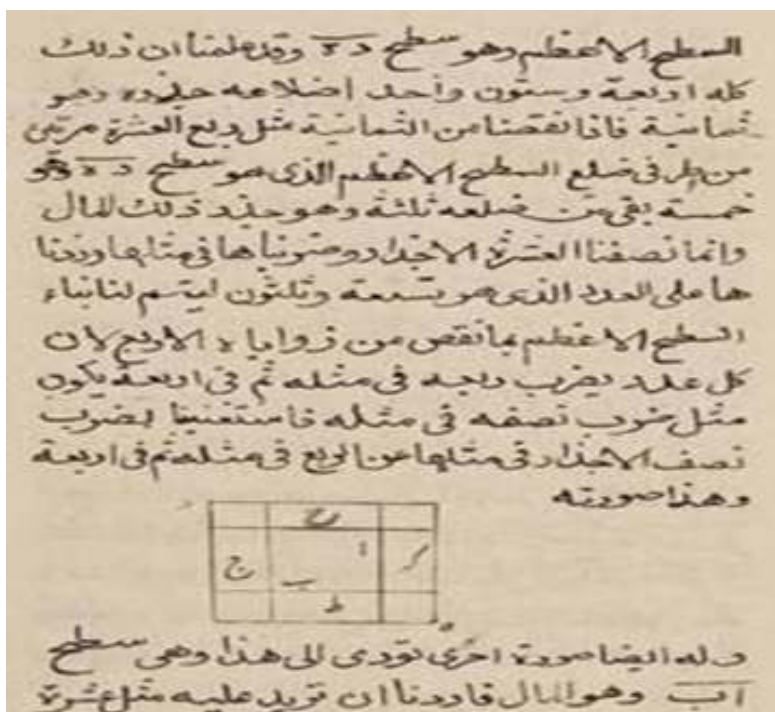 السطح الاعظم وهو سطح د ه وقد علمنا ان ذلك
كله اربعة وستون واحد اضلاعه جذره وهو
ثمانية فاذا نقصنا من الثمانية مثل ربع العشرة مرتين
من طرفى ضلع السطح الاعظم الذى هو سطح د ه وهو
خمسة بقى من ضلعه ثلثة وهو جذر ذلك المال
وانما نصفنا العشرة الاجذار وضربناها فى مثلها وزدنا
ها على العدد الذى هو تسعة وثلثون ليتم لنا بناء
السطح الاعظم بما نقص من زواياه الاربع لان
كل عدد يضرب ربعه فى مثله ثم فى اربعة يكون
مثل ضرب نصفه فى مثله فاستغنينا بضرب
نصف الاجذار فى مثلها عن الربع فى مثله ثم فى اربعة
وهذا صورته
ح
ا
ج
ب
ط
ه
وله ايضا صورة اخرى تودى الى هذا وهى سطح
ا ب وهو المال فاردنا ان نزيد عليه مثل عشرة